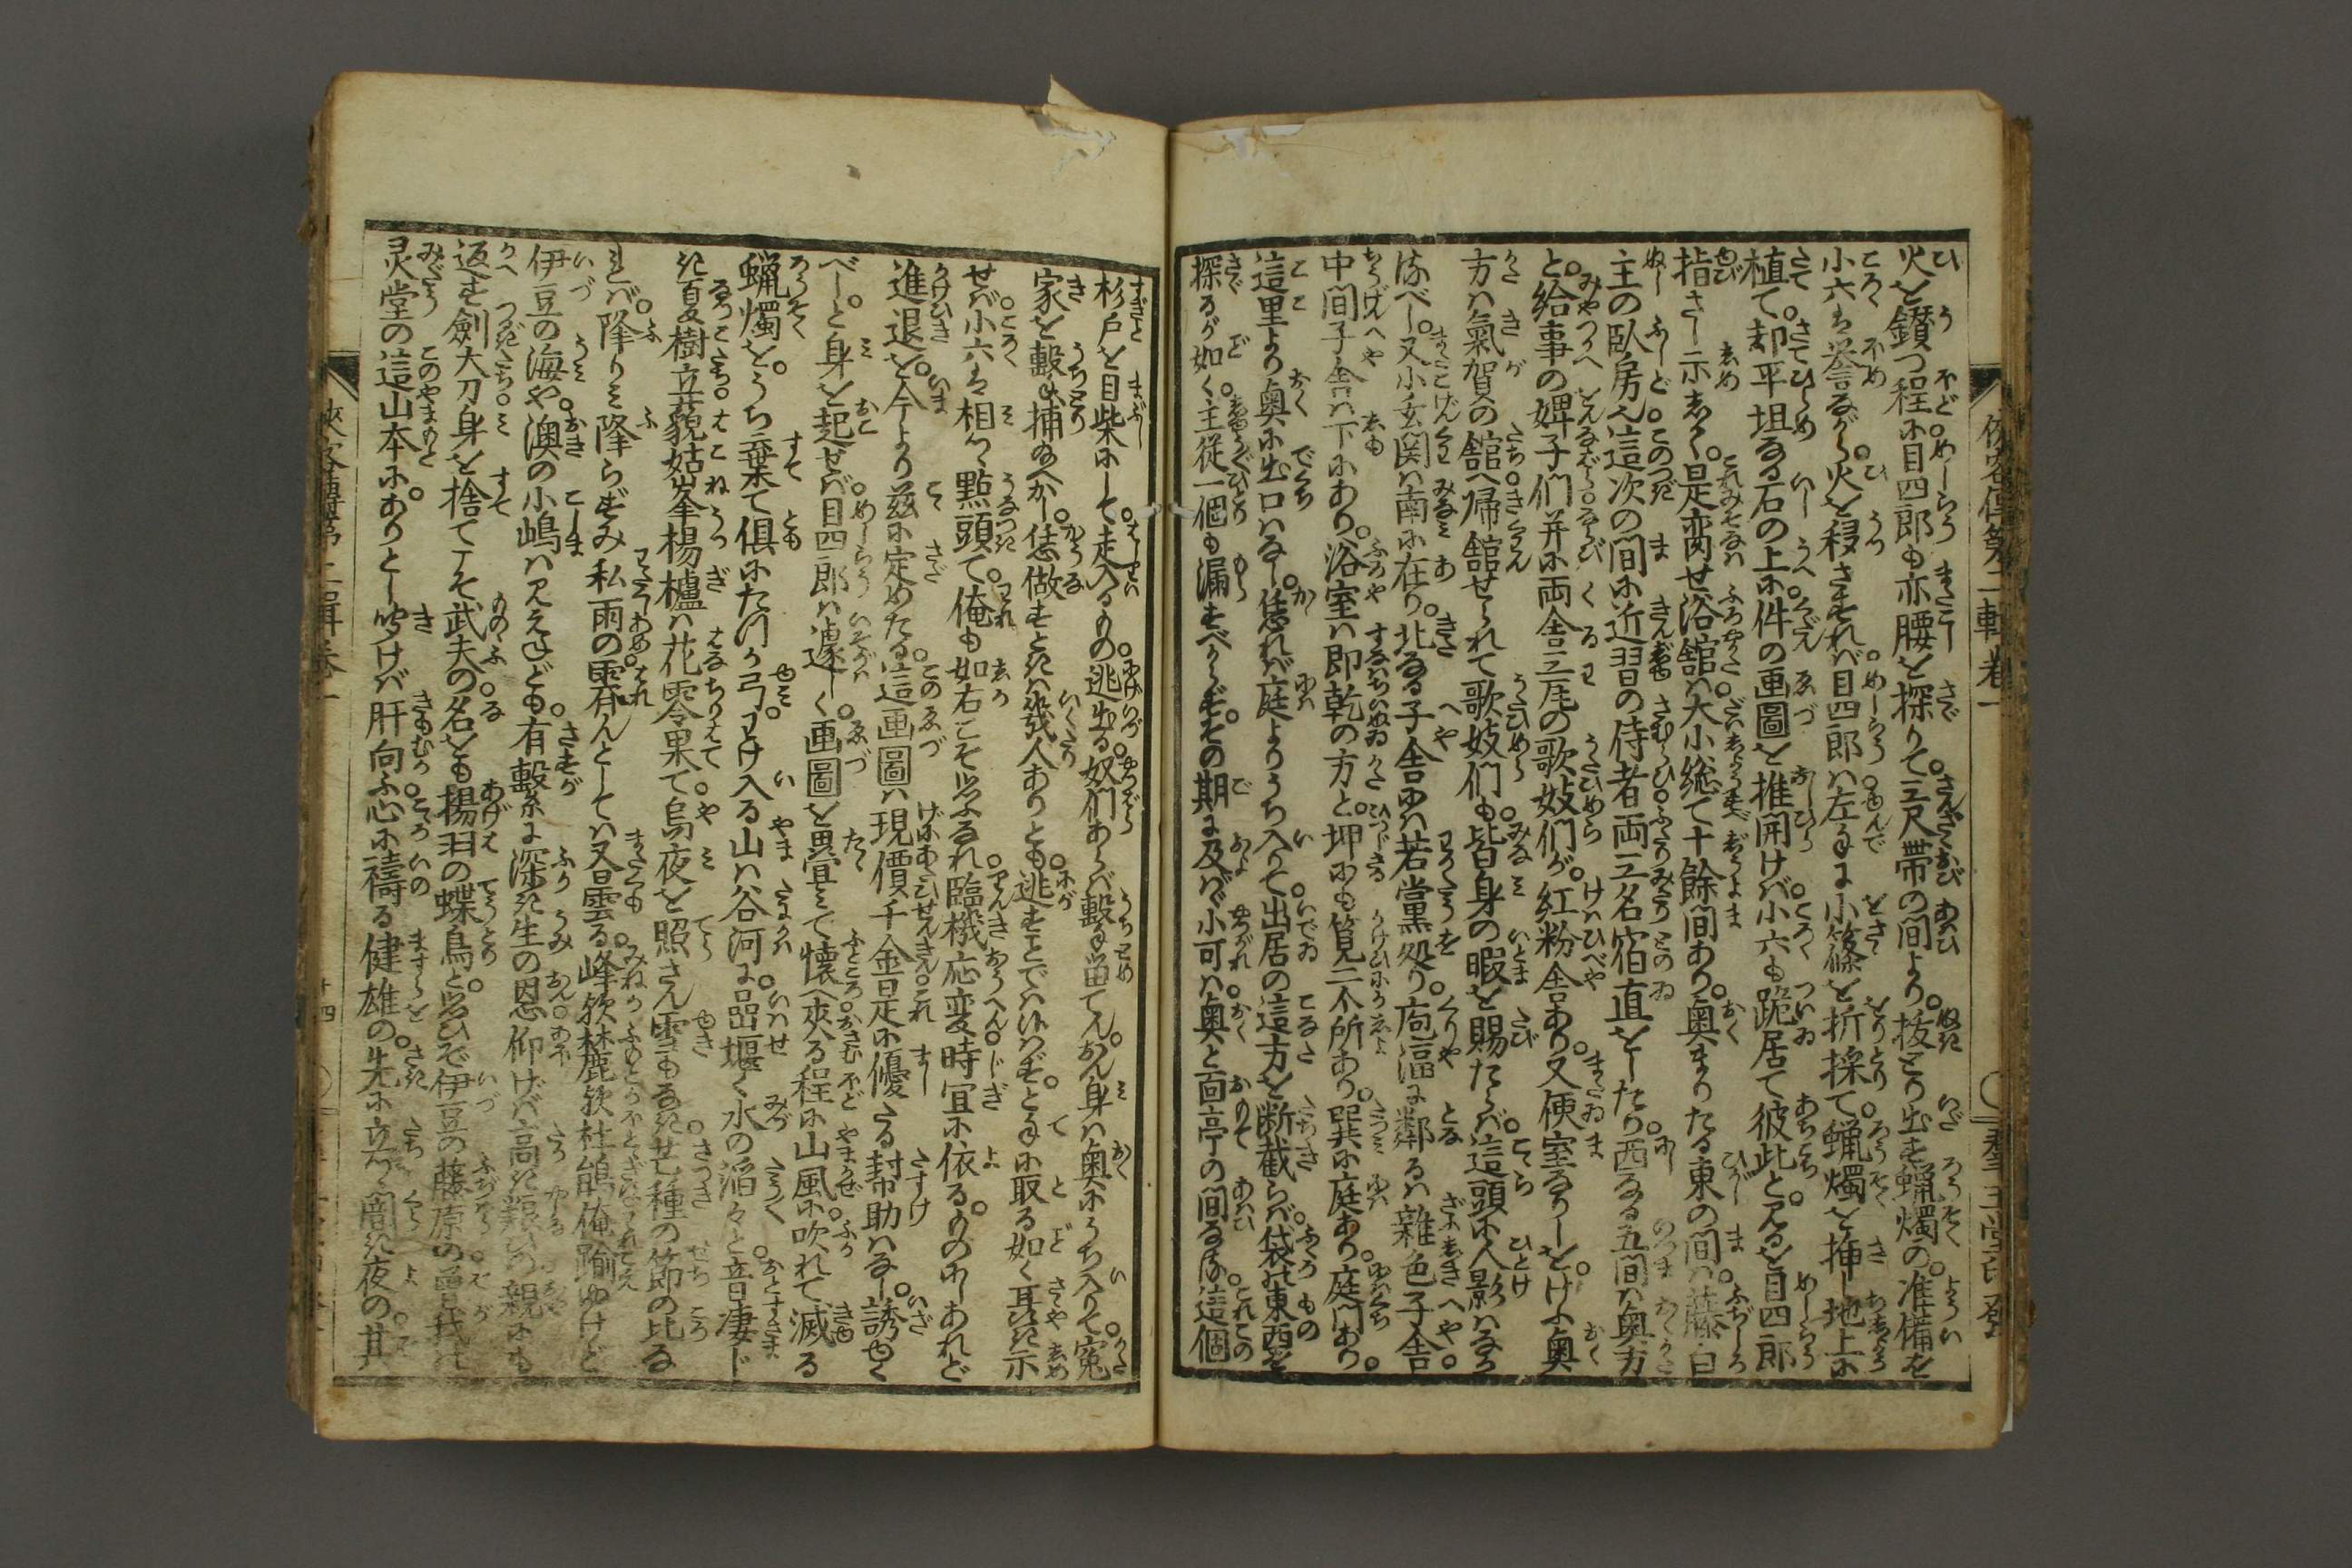 火を鑚つ程に目四郎も亦腰を探りて三尺帯の間より。抜とり出す蝋燭の。准備を
小六は誉ながら。火を移さすれば目四郎は左手に小篠を折採て蝋燭を挿し地上に
植て。却平坦なる石の上に件の画圖を推開けば小六も跪居て彼此と。見るを目四郎
指さし示すらく。是需せ浴舘は大小総て十餘間あり。奥まりたる東の間は藤白
主の臥房を這次の間に近習の侍者両三名宿直をしたり。西なる五間は奥方
と。給事の婢子們并に両舎三疋の歌妓們が。紅粉舎あり。又便室なりしを。けふ奥
方は氣賀の舘へ帰舘せられて歌妓們も皆身の暇を賜たれば。這頭に人影はなか
るべし。又小玄関は南に在り。北なる子舎には若黨処り。庖湢に鄰るは雑色子舎
中間子舎は下にあり。浴室は即乾の方と。坤にも筧二个所あり。巽に庭あり。庭門あり
這里より奥に出口はなし。恁れば庭よりうち入りて。出居の這方を断截らば。袋の東西を
探るが如く。主従一個も漏すべからず。その期に及ばゞ小可は。奥と面亭の間なる。這個
杉戸を目柴にして。走入るもの。逃出る。奴們あらば撃も留てん。おん身は奥にうち入りて。寃
家を撃も捕ゐへかし。恁做すときは幾人ありとも。逃すことではいはず。とる手に取る如く耳語示
せば。小六は相み點頭て。俺も如右こそ思ふなれ。臨機応変。時宜に依る。ものにしあれど
進退を。今より茲に定めたる。這画圖は現價千金。是に優たる封助はなし。誘ゆく
べし。と身を起せば。目四郎は遽しく。画圖を畳みて懐へ夾る程に山風に吹れて滅る
蝋燭を。うち棄て倶にたつか弓。わけ入る山は谷河に。嵒堰く水の滔々と。音凄じ
き夏樹立。藐姑峯楊櫨は花零果て。烏夜を照さん雪もなき。芒種の節の比な
れば。降りみ降らずみ私雨の霽んとしては又曇る。峰歟麓歟杜鵑俺踰ゆけど
伊豆の海や。澳の小嶋は見えねども。有繋に深き生の恩仰げば高き親にも
返す劍大刀。身を捨てこそ武夫の。名をも揚羽の蝶鳥と。思ひで伊豆の藤原の
灵堂の這山本に。ありとし聞けば肝向ふ。心に禱る健雄の。先に立つゝ闇き夜の。其
侠客傳第二輯巻一